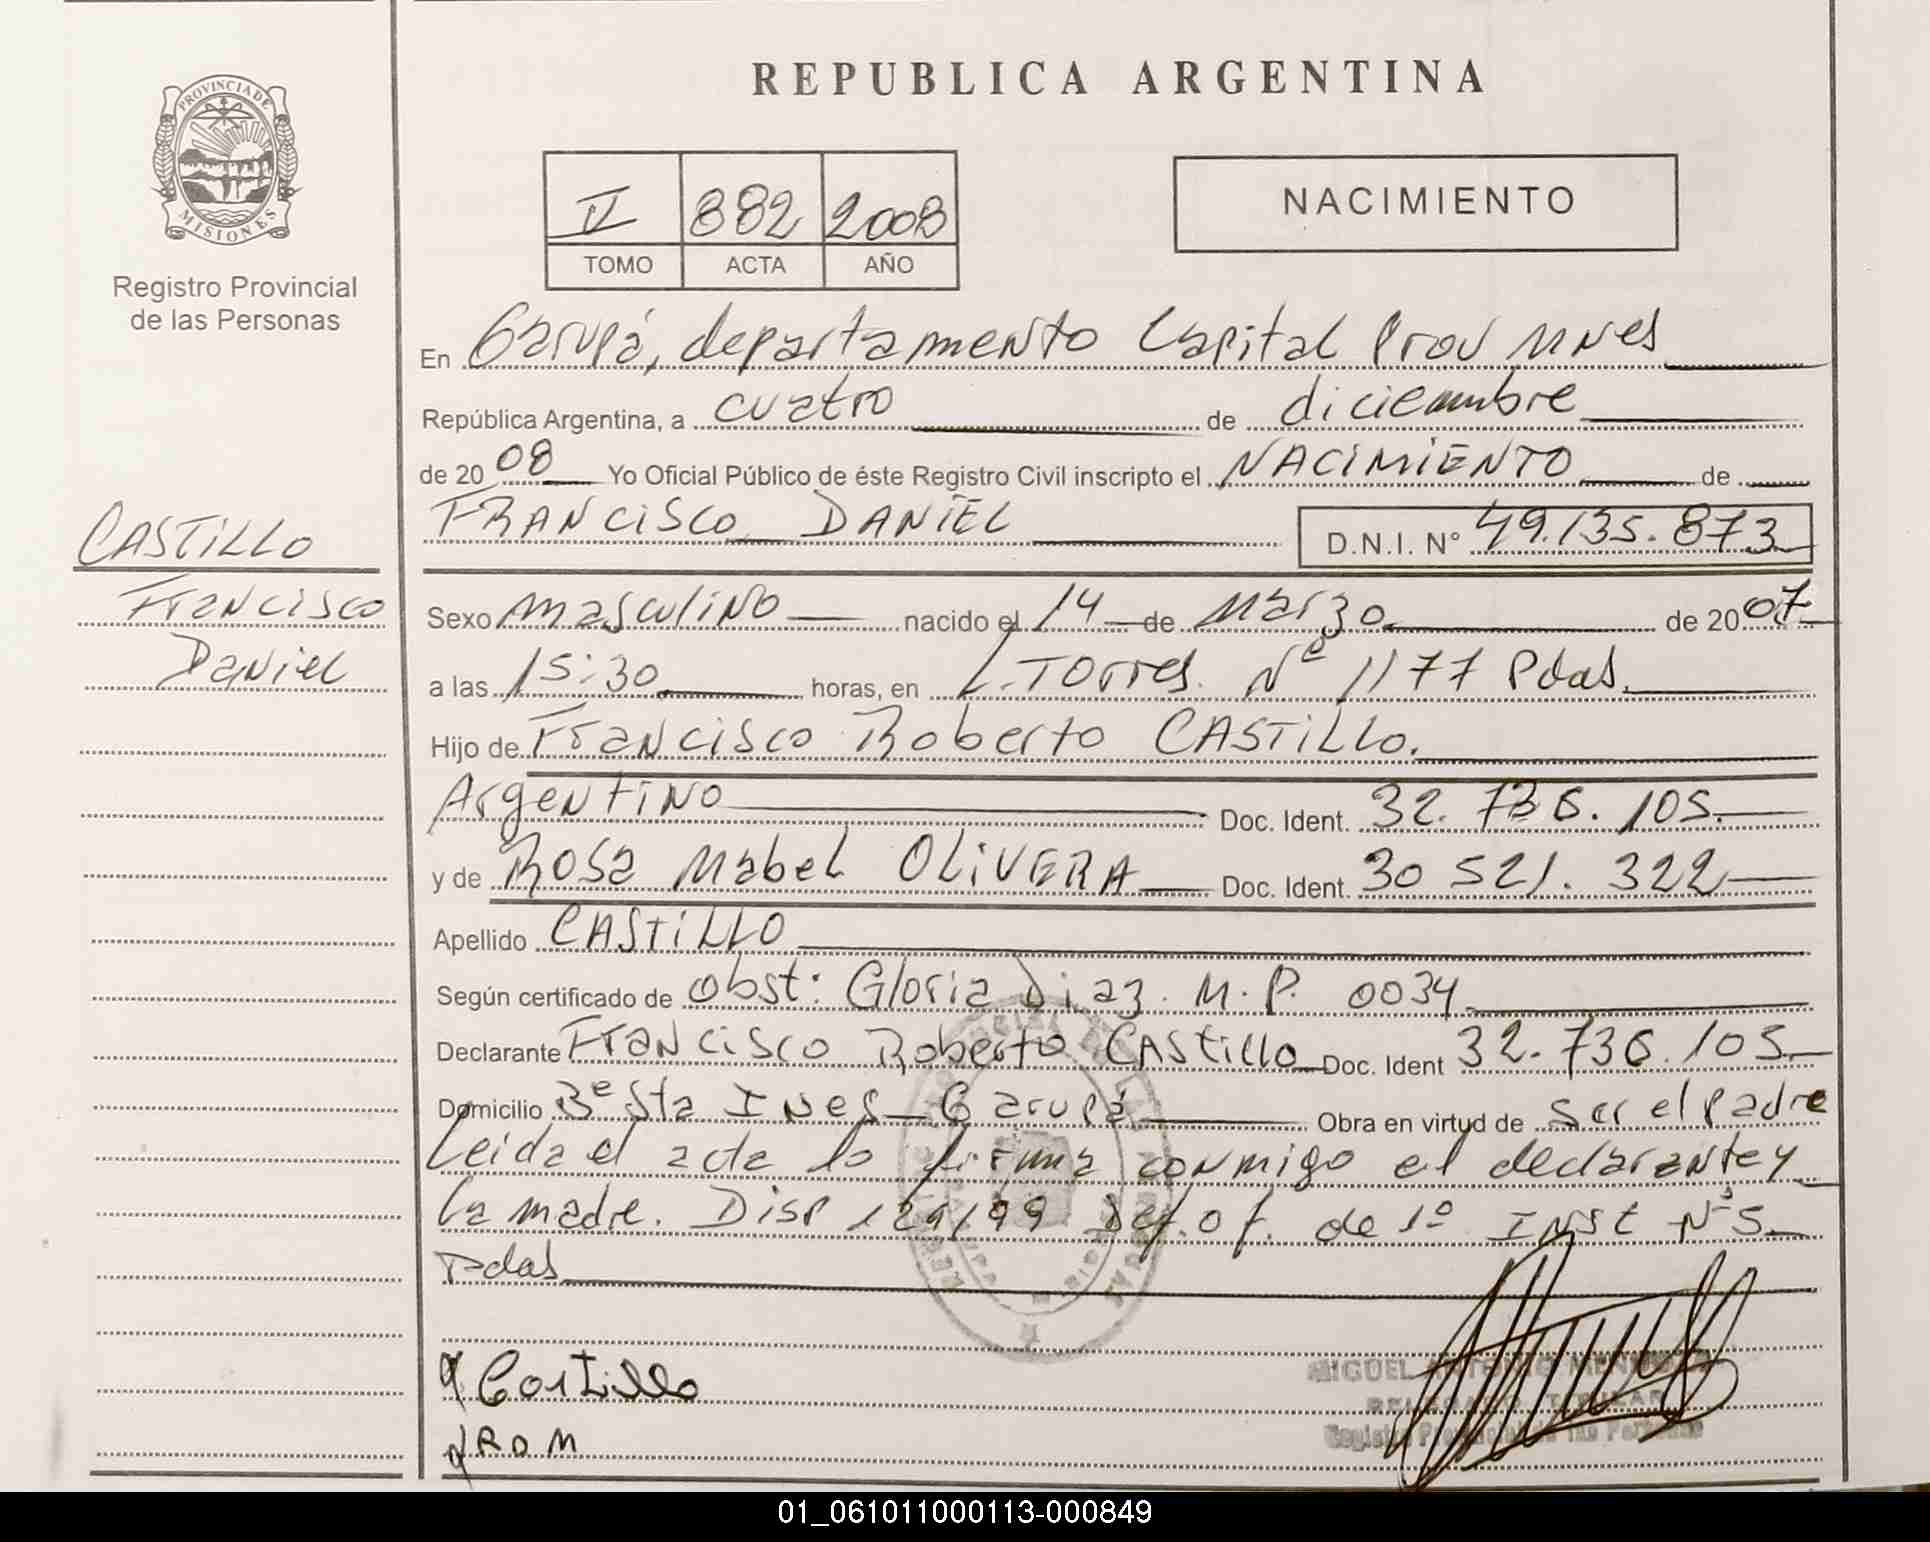 REPUBLICA ARGENTINA
PROVINCIA DE
MISIONES
Registro Provincial
de las Personas
II 882 2008
TOMO ACTA AÑO
NACIMIENTO
En Garupá, departamento Capital Prov Mnes
República Argentina, a cuatro de diciembre
de 2008 Yo Oficial Público de éste Registro Civil inscripto el NACIMIENTO de
FRANCISCO DANIEL D.N.I. N° 49.135.873
CASTILLO
Francisco
Daniel
Sexo masculino nacido el 14 de Marzo de 2007
a las 15:30 horas, en L. Torres Nº 1177 Pdas.
Hijo de Francisco Roberto CASTILLO.
Argentino Doc. Ident. 32.736.105.
y de Rosa Mabel OLIVERA Doc. Ident. 30 521. 322
Apellido CASTILLO
Según certificado de obst: Gloria Diaz. M.P. 0034
Declarante Francisco Roberto Castillo Doc. Ident 32.736.105.
Domicilio Bº Sta Ines - Garupá Obra en virtud de ser el padre
Leida el acta lo firma conmigo el declarante y
la madre. Disp 129/99 Def. of. de 1º Inst Nº 5
Pdas
Castillo
ROM
MIGUEL ANTONIO
DELEGADO TITULAR
Registro Provincial de las Personas
01_061011000113-000849